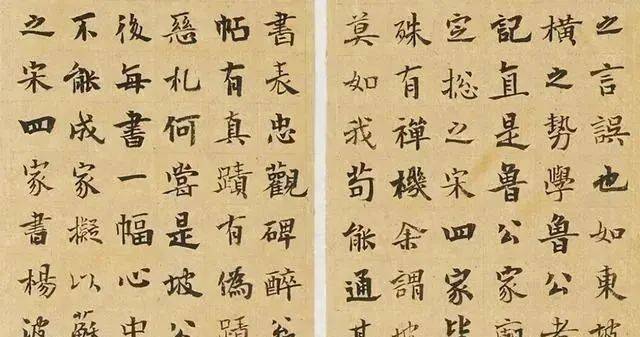 之言誤也如東坡
橫之勢學魯公者
記直是魯公家廟
定総之宋四家皆
殊有禪機余謂坡
莫如我苟能通其
書表忠觀碑醉翁
帖有真蹟有偽蹟
惡札何嘗是坡公
後每書一幅心中
不能成家擬以蘇
之宋四家書楊波